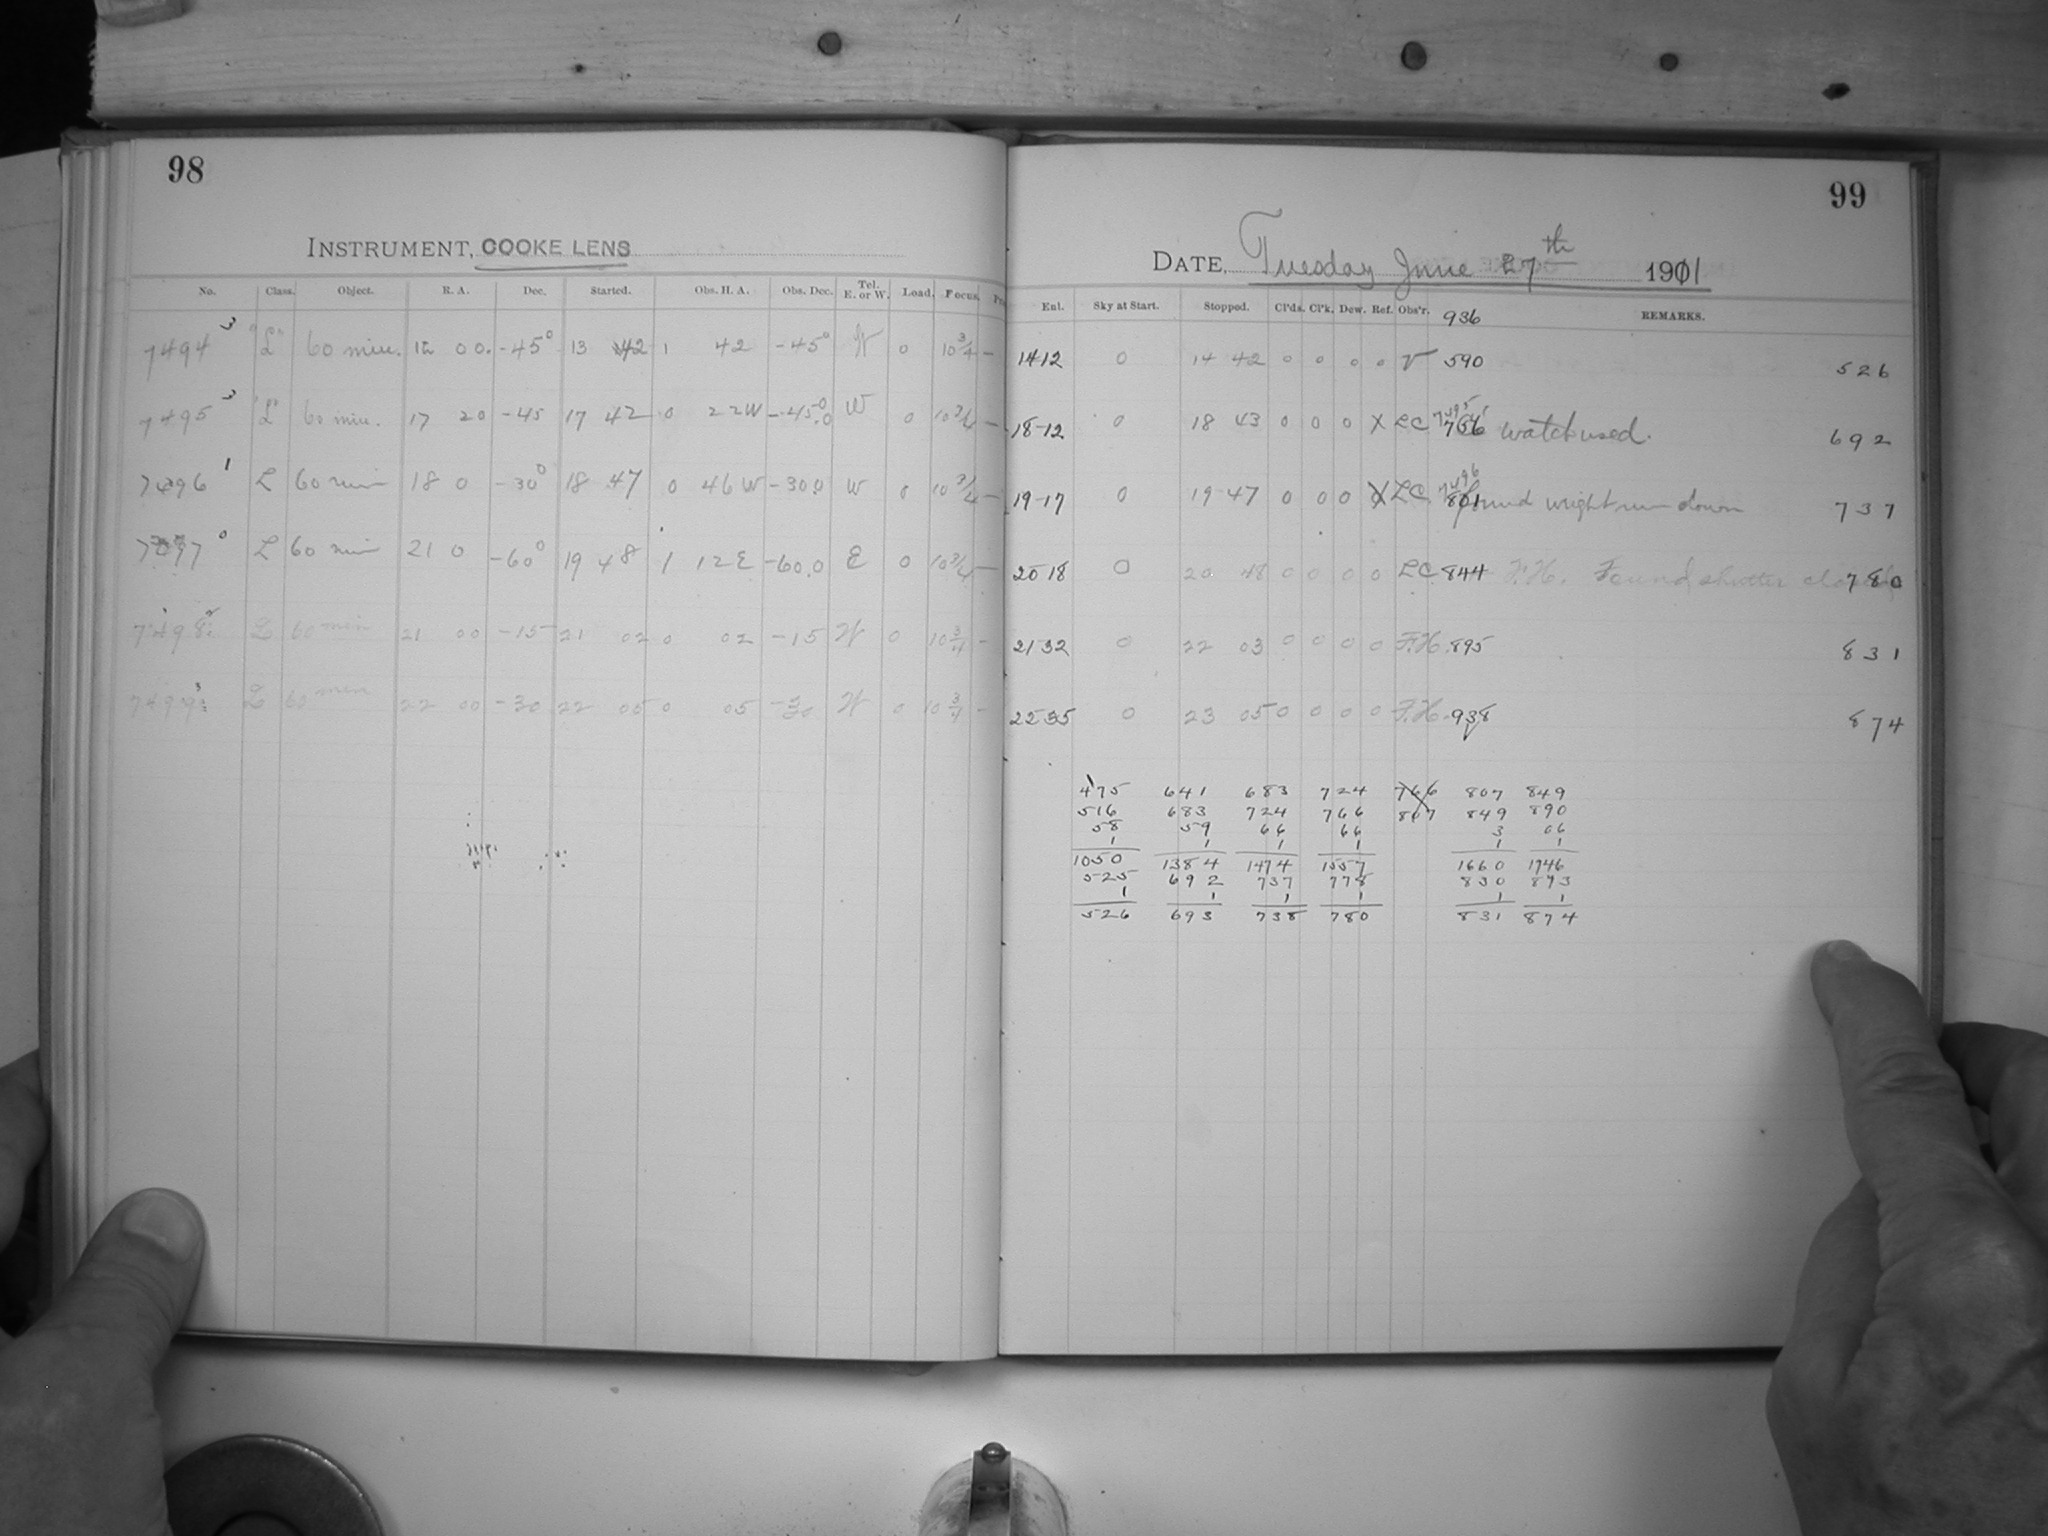 98
INSTRUMENT, COOKE LENS
No. Class. Object. R. A. Dec. Started. Obs. H. A. Obs. Dec. Tel. E. or W. Load. Focus.
7494 3 "L" 60 min. 12 00. -45° 13 42 1 42 -45° W 0 10 3/4 —
7495 3 "L" 60 min. 17 20 -45 17 42 0 22W -45.0 W 0 10 3/4 —
7496 1 L 60 min 18 0 -30° 18 47 0 46W -30.0 W 0 10 3/4 —
7497 0 L 60 min 21 0 -60° 19 48 1 12E -60.0 E 0 10 3/4 —
7498 L 60 min 21 00 -15 21 02 0 02 -15 W 0 10 3/4 -
7499 3 L 60 min 22 00 -30 22 05 0 05 -30 W 0 10 3/4 -
99
DATE, Tuesday June 27th 1901
Ent. Sky at Start. Stopped. Cl'ds. Cl'k. Dew. Ref. Obs'r. 936 REMARKS.
14 12 0 14 42 0 0 0 0 V 590 526
18-12 0 18 43 0 0 0 X LC 7495 watch used. 692
19-17 0 19 47 0 0 0 X LC 7496 801 found weight run down 737
20 18 0 20 48 0 0 0 0 LC 844 F.H. Found shutter closed 780
21 32 0 22 03 0 0 0 0 F.H. 895 831
22 35 0 23 05 0 0 0 0 F.H. 938 874
475 641 683 724 766 807 849
516 683 724 766 807 849 890
58 59 66 66 3 06
1 1 1 1 1 1
1050 1384 1474 1557 1660 1746
525 692 737 778 830 873
1 1 1 1 1
526 693 738 780 831 874